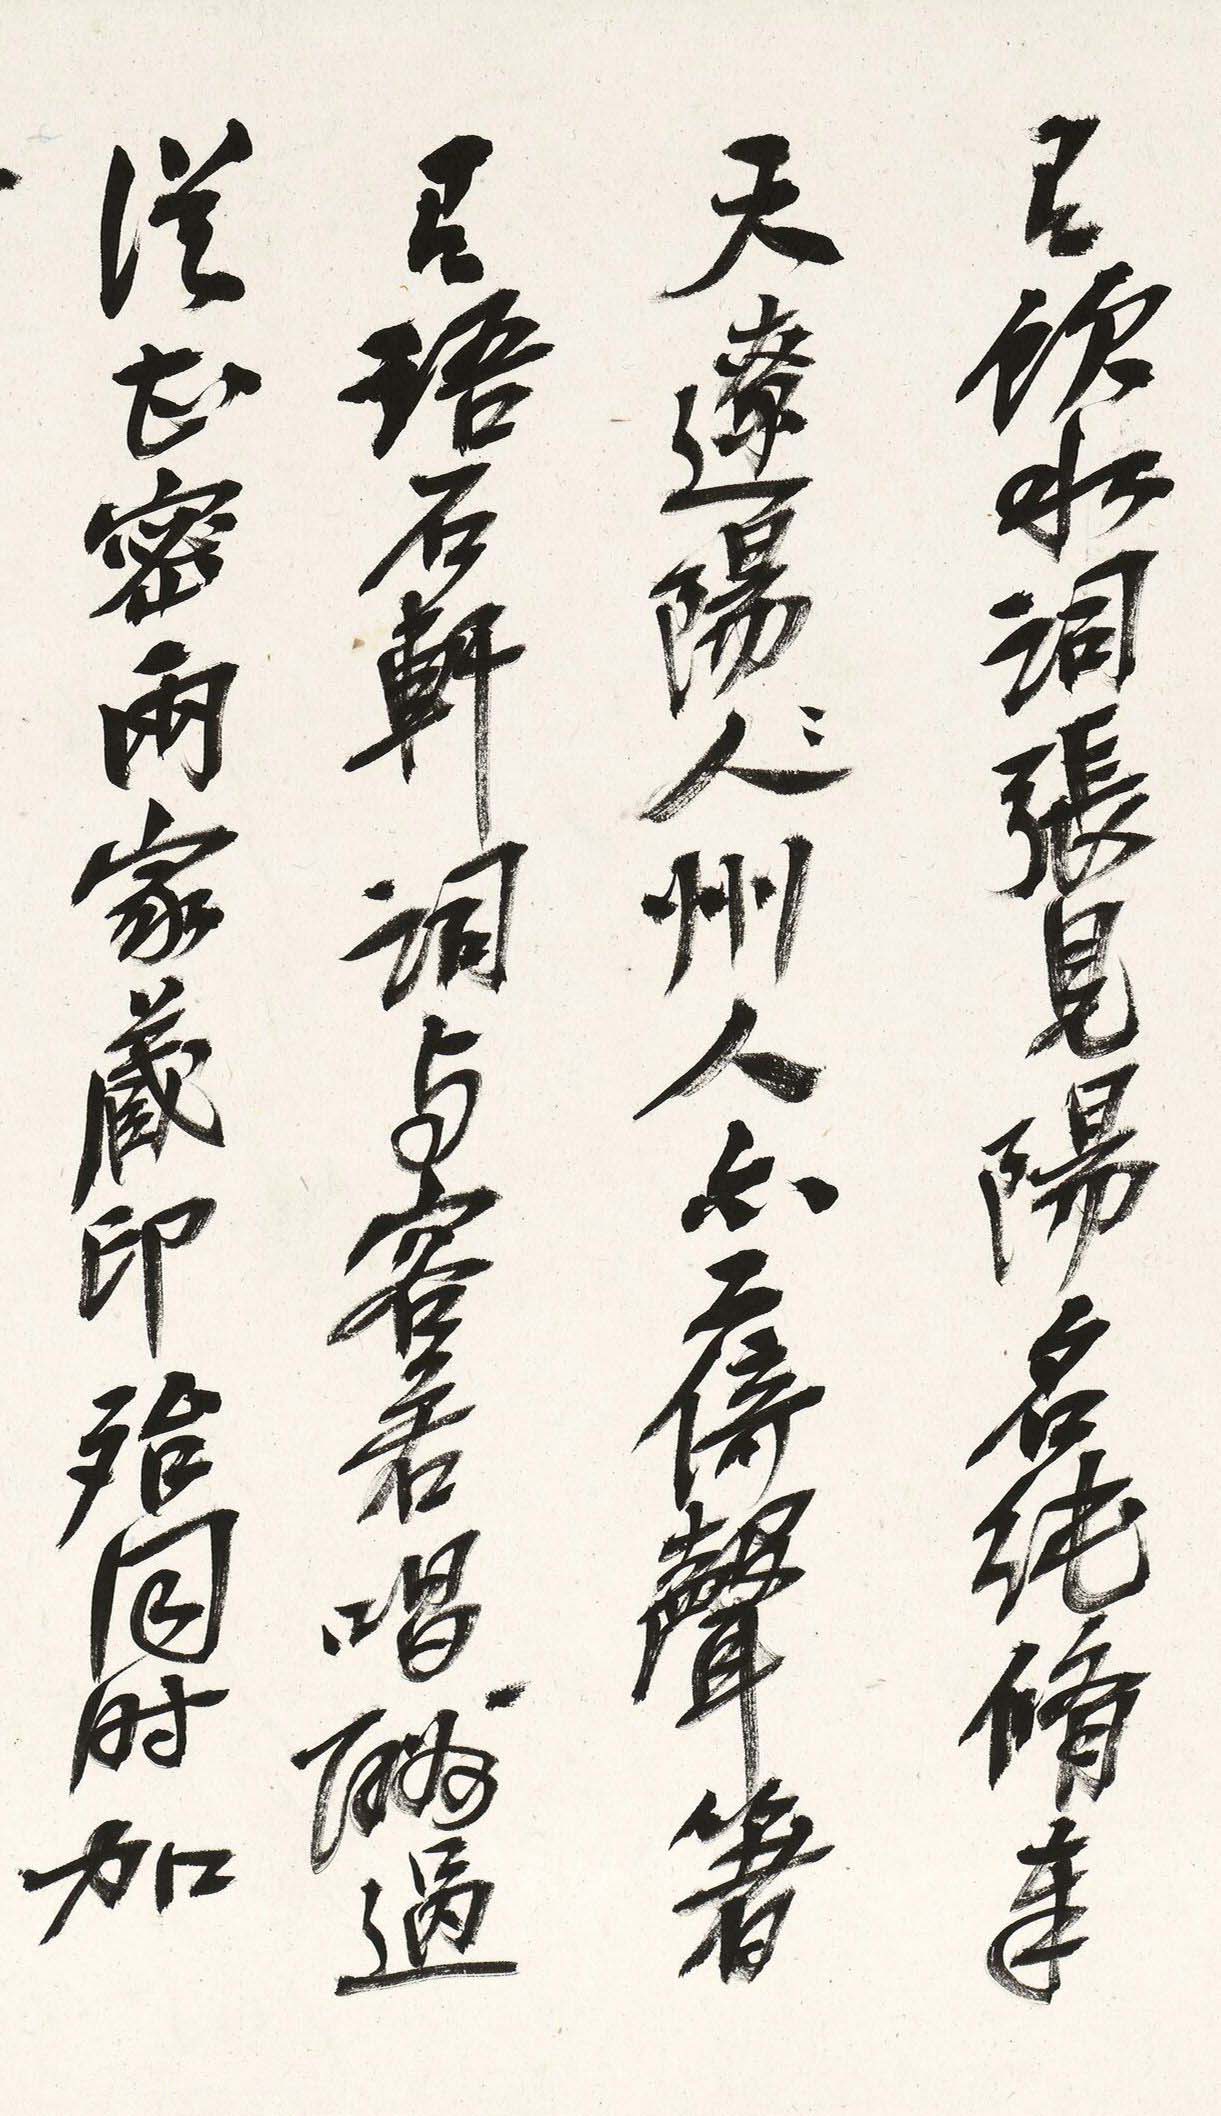 有飲水詞張見陽名純脩奉
天遼陽人〻州人亦工倚聲著
有語石軒詞与容若唱酬過
從甚密兩家藏印殆同时加